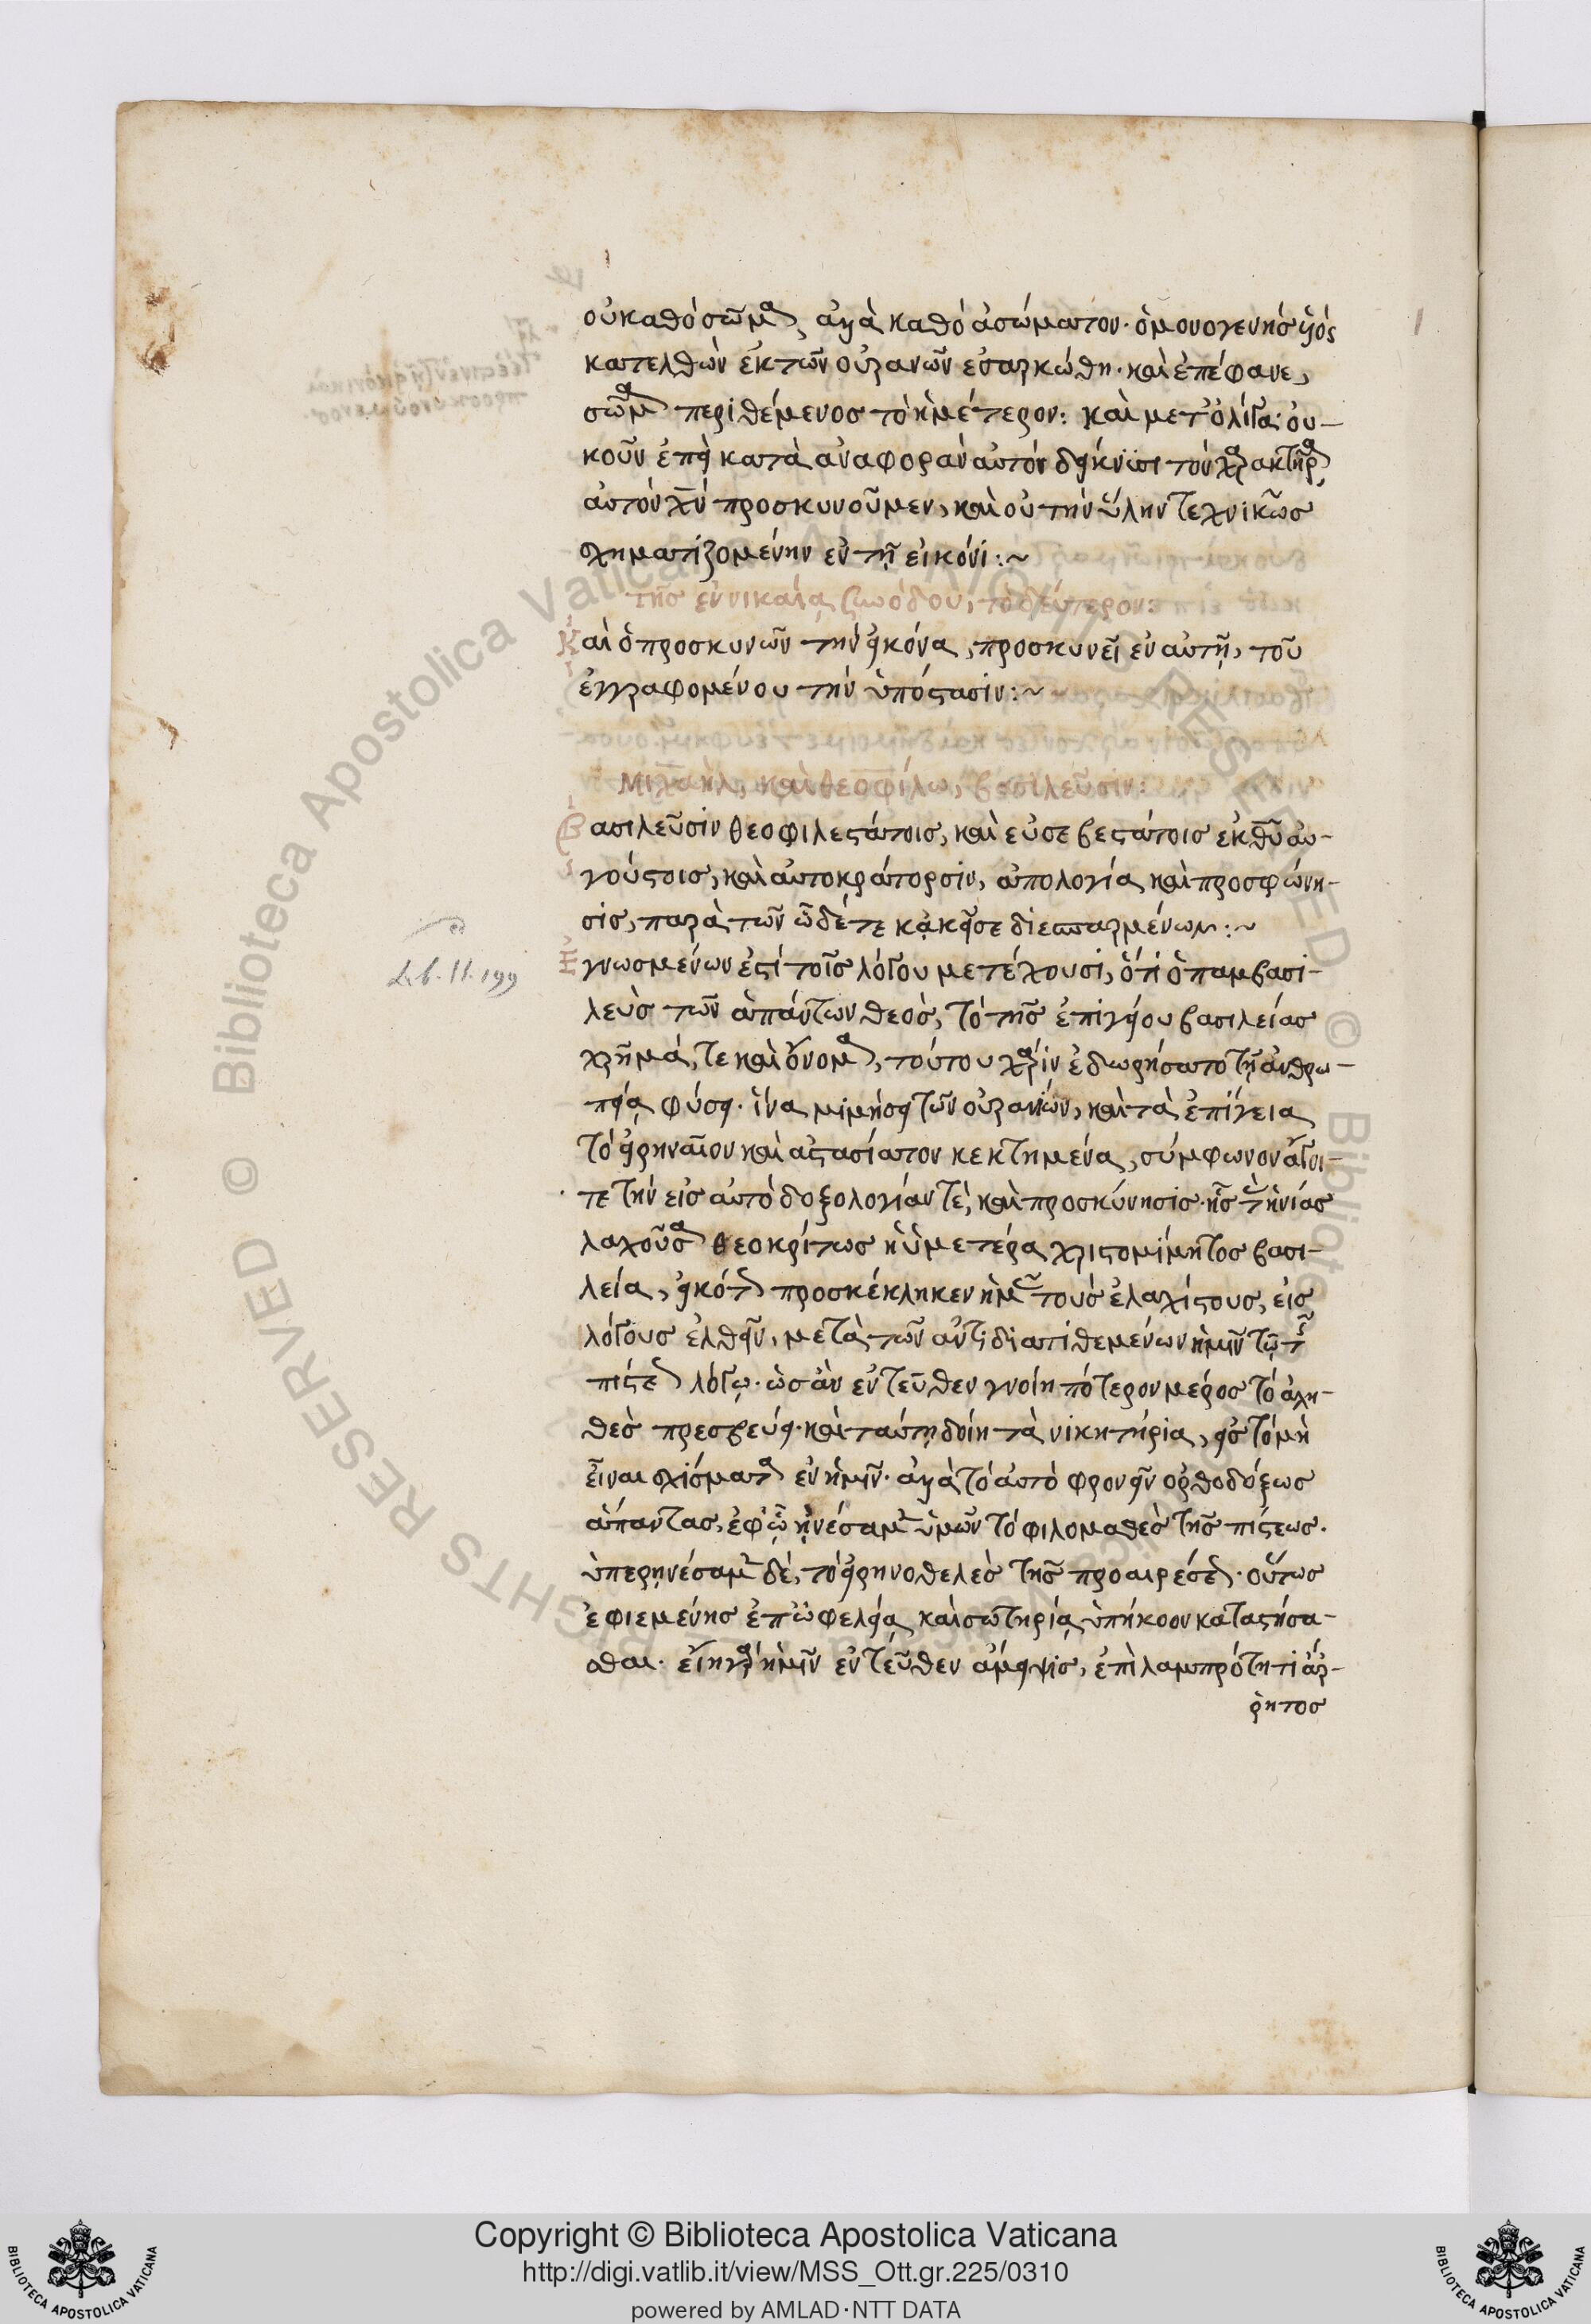 οὐ καθὸ σῶμα, ἀλλὰ καθὸ ἀσώματον· ὁ μονογενὴς υἱός
κατελθὼν ἐκ τῶν οὐρανῶν ἐσαρκώθη· καὶ ἐπέφανε,
σῶμα περιθέμενος τὸ ἡμέτερον: καὶ μετ' ὀλίγα· οὐ-
κοῦν ἐπεὶ κατὰ ἀναφορὰν αὐτὸν δείκνυσι τὸν χαρακτῆρα
αὐτὸν χν προσκυνοῦμεν, καὶ οὐ τὴν ὕλην τεχνικῶς
σχηματιζομένην ἐν τῇ εἰκόνι :~
τῆς ἐν νικαίᾳ συνόδου, τὸ δεύτερον:
Καὶ ὁ προσκυνῶν τὴν εἰκόνα, προσκυνεῖ ἐν αὐτῇ, τοῦ
ἐγγραφομένου τὴν ὑπόστασιν :~
Μιχαὴλ, καὶ θεοφίλω, βασιλεῦσιν:
Βασιλεῦσιν θεοφιλεστάτοις, καὶ εὐσεβεστάτοις ἐκ θῦ αὐ-
γούστοις, καὶ αὐτοκράτορσιν, ἀπολογία καὶ προσφώνη-
σις, παρὰ τῶν ὧδέ τε κἀκεῖσε διεσπαρμένων :~
Ἐγνωσμένων ἐστὶ τοῖς λόγου μετέχουσι, ὅτι ὁ παμβασι-
λεὺς τῶν ἁπάντων θεὸς, τὸ τῆς ἐπιγείου βασιλείας
χρῆμά, τε καὶ ὄνομα, τούτου χάριν ἐδωρήσατο τῇ ἀνθρω-
πείᾳ φύσει· ἵνα μιμήσει τῶν οὐρανίων, καὶ τὰ ἐπίγεια
τὸ εἰρηναῖον καὶ ἀστασίαστον κεκτημένα, σύμφωνον ἄγοι-
τε τὴν εἰς αὐτὸ δοξολογίαν τὲ, καὶ προσκύνησις· ἧς τὰς ἡνίας
λαχοῦσα θεοκρίτως ἡ ὑμετέρα χριστομίμητος βασι-
λεία, εἰκότως προσκέκληκεν ἡμᾶς τοὺς ἐλαχίστους, εἰς
λόγους ἐλθεῖν, μετὰ τῶν ἀντιδιατιθεμένων ἡμῖν τῷ τῆς
πίστεως λόγῳ· ὡς ἂν ἐντεῦθεν γνοίη πότερον μέρος τὸ ἀλη-
θὲς πρεσβεύει· καὶ ταύτῃ δοίη τὰ νικητήρια, εἰς τὸ μὴ
εἶναι σχίσματα ἐν ἡμῖν· ἀλλὰ τὸ αὐτὸ φρονεῖν ὀρθοδόξως
ἅπαντας, ἐφ' ᾧ ᾐνέσαμεν ὑμῶν τὸ φιλομαθὲς τῆς πίστεως.
ὑπερῃνέσαμεν δὲ, τὸ εἰρηνοθελὲς τῆς προαιρέσεως· οὕτως
ἐφιεμένης ἐπ' ὠφελείᾳ καὶ σωτηρίᾳ ὑπήκοον καταστήσα-
σθαι· εἴη γὰρ ἡμῖν ἐντεῦθεν ἀμειψις, ἐπὶ λαμπρότητι ἄρ-
ρητος
Copyright © Biblioteca Apostolica Vaticana
http://digi.vatlib.it/view/MSS_Ott.gr.225/0310
powered by AMLAD·NTT DATA